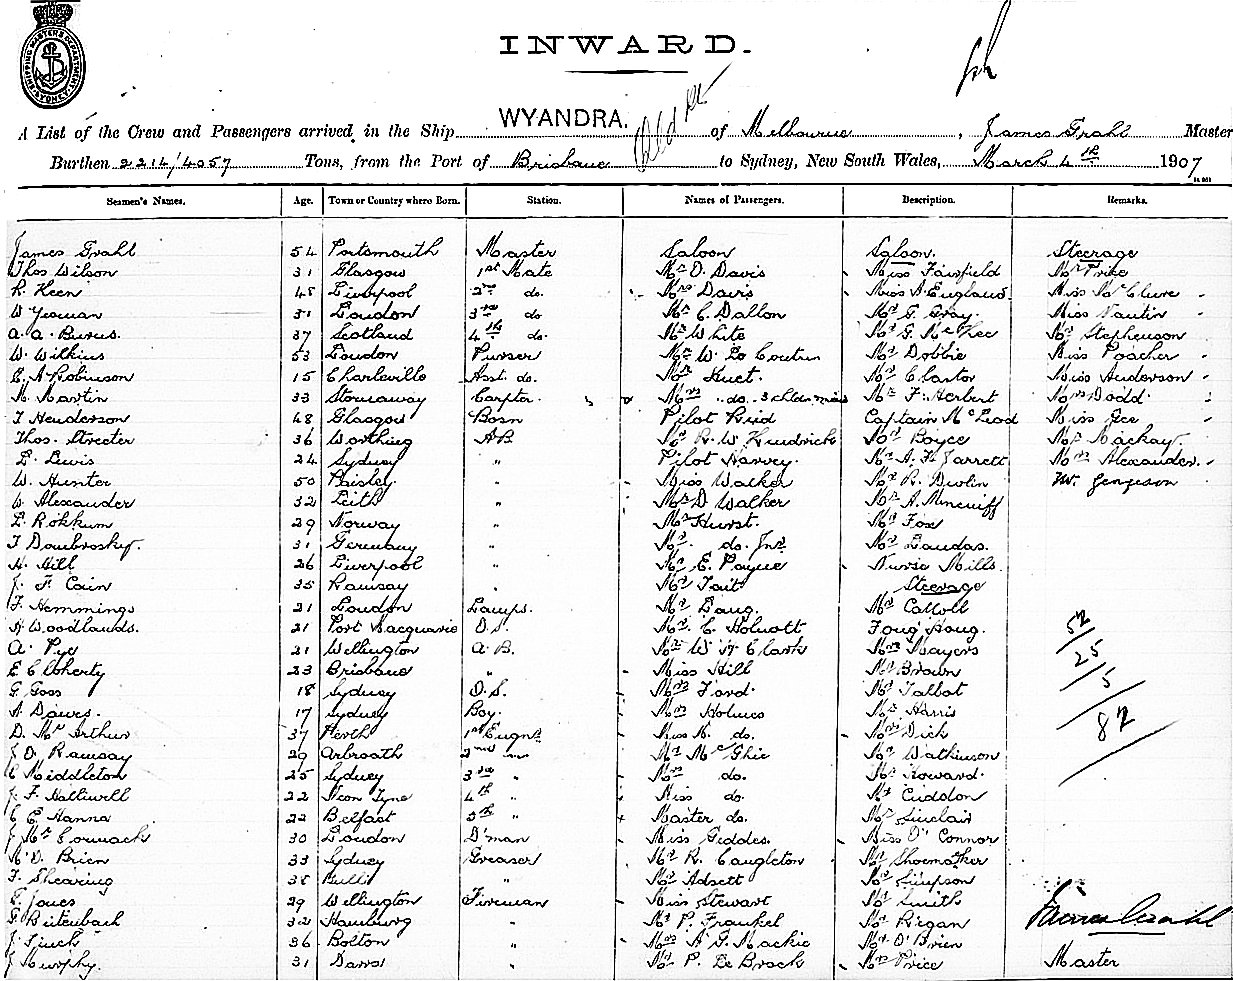 INWARD.
WYANDRA.
A List of the Crew and Passengers arrived in the Ship WYANDRA. of Melbourne, James Grahl Master
Burthen 2214/4057 Tons, from the Port of Brisbane to Sydney, New South Wales, March 4th 1907
Seamen's Names. Age. Town or Country where Born. Station. Names of Passengers. Description. Remarks.
James Grahl 54 Portsmouth Master Saloon Saloon. Steerage
Thos Wilson 31 Glasgow 1st Mate Mr D. Davis Miss Fairfield Mr Price
R. Keen 48 Liverpool 2nd do. Mrs Davis Miss A England Miss McClure
W Yeoman 31 London 3rd do Mr C. Dallon Mr G. Gray. Miss Vautin
A. A. Burns. 37 Scotland 4th do. Mr White Mr G. McPhee Mr Stephenson
W. Wilkins 53 London Purser Mr W. Le Coutin Mr Dobbie Miss Poacher
A Robinson 15 Charleville Asst. do. Mr Huet. Mr Clastor Miss Anderson
M. Martin 33 Stornaway Carptr. Mrs do. 3 chldn Mr F. Herbert Mrs Dodd
T Henderson 48 Glasgow Bosn Pilot Reid Captain McLeod Miss Gee
Thos. Streeter 36 Worthing AB Mr R. W. Kendrick Mr Boyce Mr Mackay.
L. Lewis 24 Sydney " Pilot Harvey. Mr A. H Jarrett Mrs Alexander.
W. Hunter 50 Paisley " Miss Walker Mr R. Devlin Mr Jengeson
W. Alexander 32 Leith " Mr D Walker Mr A. Moncrieff
L. Rokkum 29 Norway " Mr Hurst. Mr Fox
T Dombrosky. 31 Germany " Mr do. Jnr. Mr Landas.
H. Hill 26 Liverpool " Mr E. Payne Nurse Mills.
J. F. Cain 35 Ramsay " Mr Tait Steerage
F. Hemmings 21 London Lamps. Mr Daug. Mr Carroll
H Woodlands. 21 Port Macquarie O.S. Mr C. Holmott Foug Houg.
A. Pye 21 Wellington A.B. Mr W H Clark Mrs Mayers
E C Doherty 23 Brisbane " Miss Hill Mr Brown
G Goss 18 Sydney O.S. Mrs Ford. Mr Talbot
A Dawes. 17 Sydney Boy. Mrs Holmes Mr Harris
D. McArthur 37 Perth 1st Engnr. Miss K. do. Mrs Dich
J D. Ramsay 29 Arbroath 2nd " Mr McGhie Mr Watkinson
C Middleton 25 Sydney 3rd " Mrs do. Mr Howard.
J. F. Halliwell 22 Tyne 4th " Miss do. Mr Cuddon
C E. Hanna 22 Belfast 5th " Master do. Mr Sinclair
J McCormack 30 London D'man Miss Geddes. Miss O'Connor
M. O. Brien 33 Sydney Greaser Mr R. Caugleton Mr Shoemaker
F. Shearing 38 Bulli " Mr Adsett Mr Simpson
T. Jones 29 Wellington Fireman Miss Stewart Mr Smith
G. Reitenbach 32 Hamburg " Mr P. Fraukel Mr Regan
J. Finch 36 Bolton " Mrs A G. Mackie Mr O'Brien
J Murphy. 31 " Mr P. Le Brock Mrs Price
52
25
5
82
James Grahl
Master